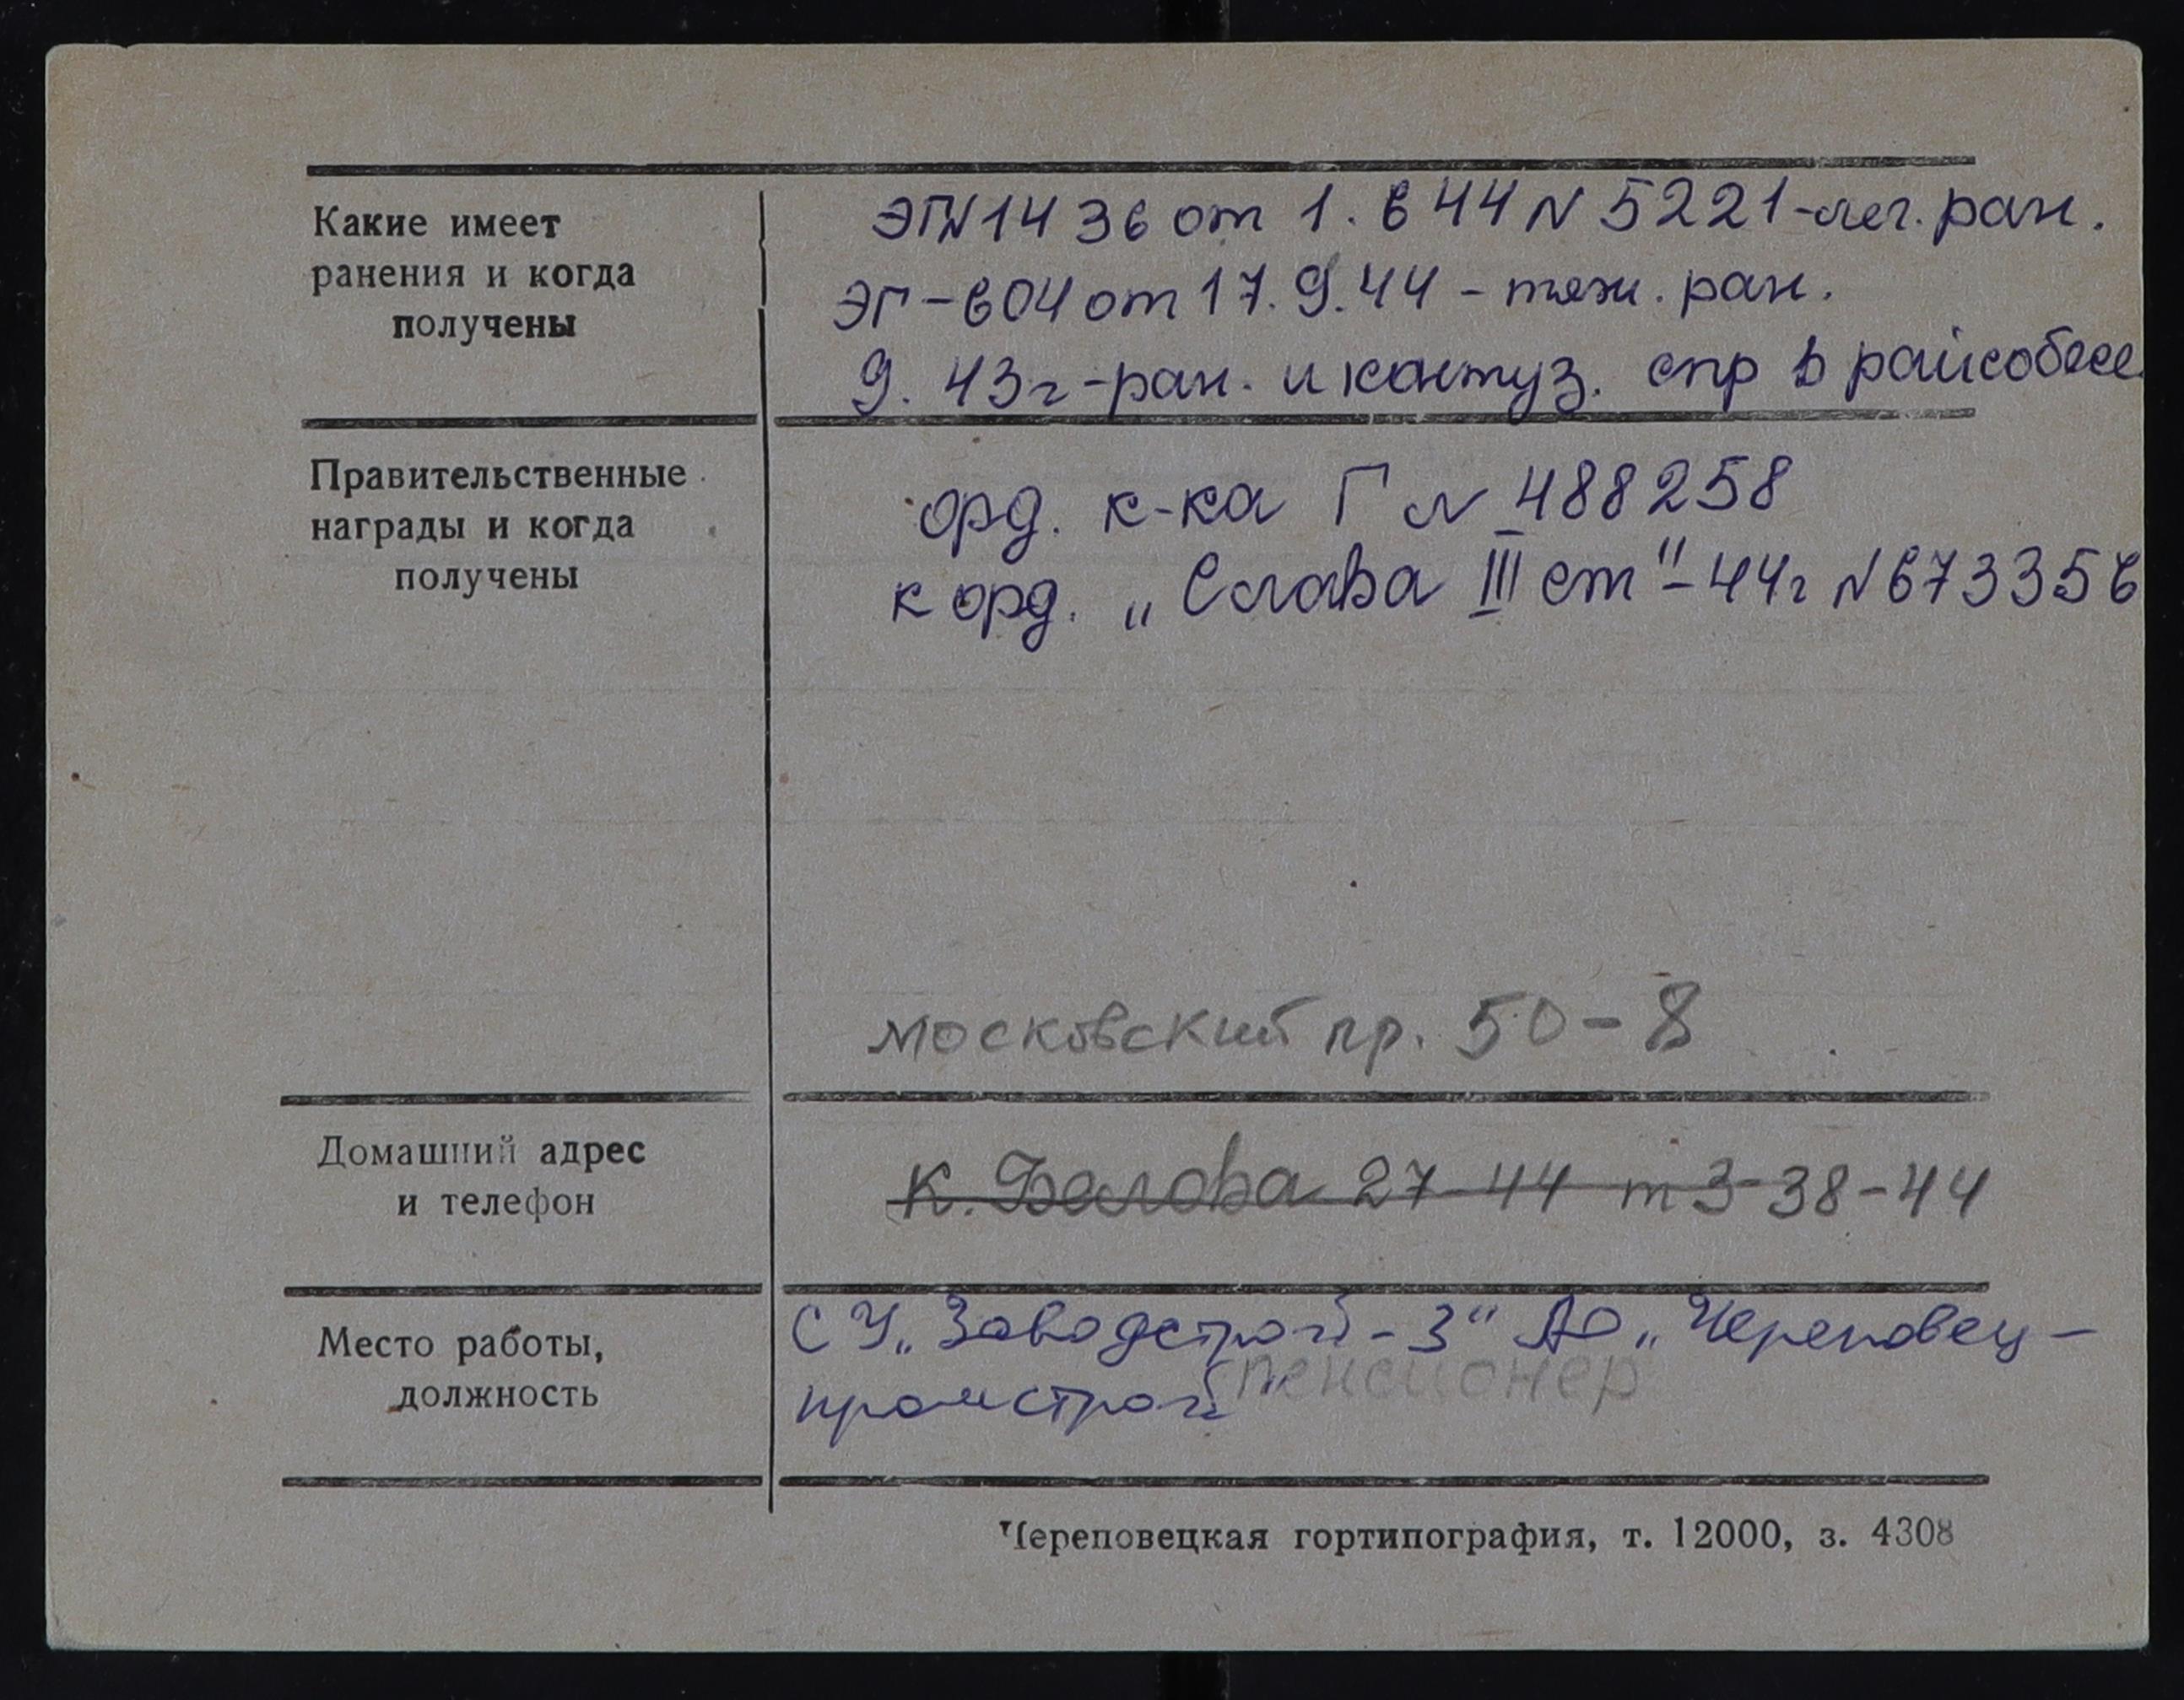 Какие имеет
ранения и когда
получены
ЭГN1436 от 1.6 44 N 5221-лег. ран.
ЭГ-604 от 17.9.44 - тяж. ран.
9. 43г-ран. и контуз. спр в райсобесе
Правительственные
награды и когда
получены
орд. к-ка Г N 488258
к орд. „Слава III ст"-44г N673356
московский пр. 50-8
Домашний адрес
и телефон
К. Белова 27-44 т 3-38-44
Место работы,
должность
СУ„Заводстрой-3" АО „Череповец-
промстрой"
пенсионер
Череповецкая гортипография, т. 12000, з. 4308